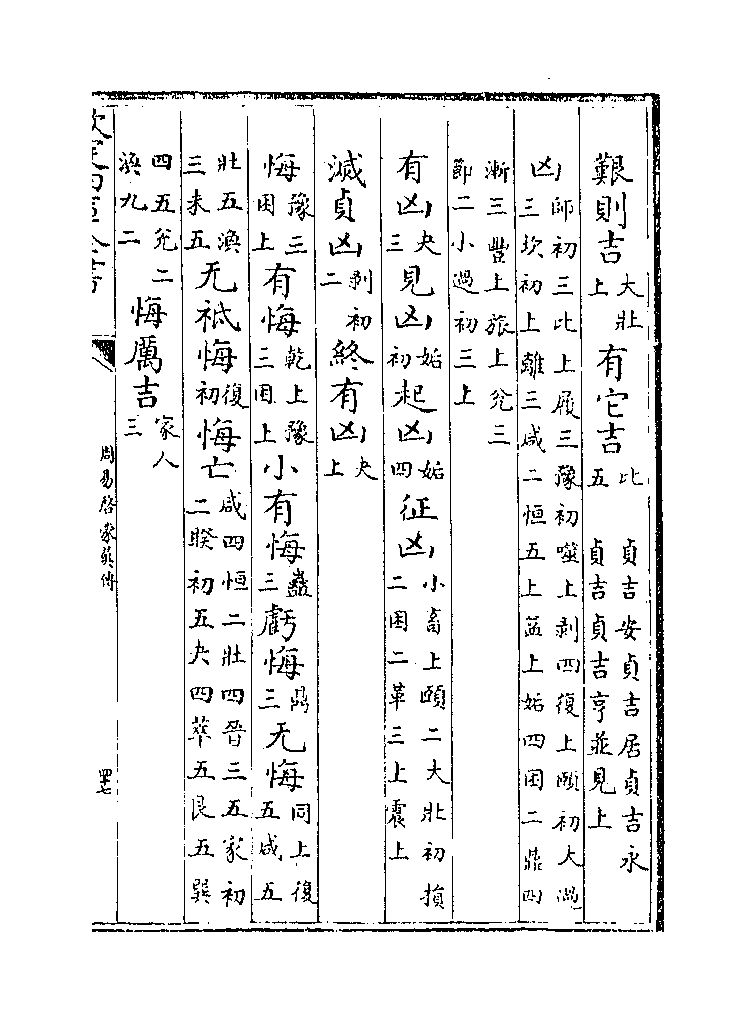 艱則吉大壯上有它吉比五貞吉安貞吉居貞吉永貞吉貞吉亨並見上
凶師初三比上履三豫初噬上剥四復上頤初大過三坎初上離三咸二恒五上益上姤四困二鼎四
漸三豐上旅上兌三節二小過初三上
有凶夬三見凶姤初起凶姤四征凶小畜上頤二大壯初損二困二革三上震上
滅貞凶剥初二終有凶夬上
悔豫三困上有悔乾上豫三困上小有悔蠱三虧悔鼎三无悔同上復五咸五
壯五渙三未五无祗悔復初悔亡咸四恒二壯四晉三五家初二睽初五夬四萃五艮五巽
四五兌二渙九二悔厲吉家人三
欽定四庫全書
周易啓蒙翼傳
四七